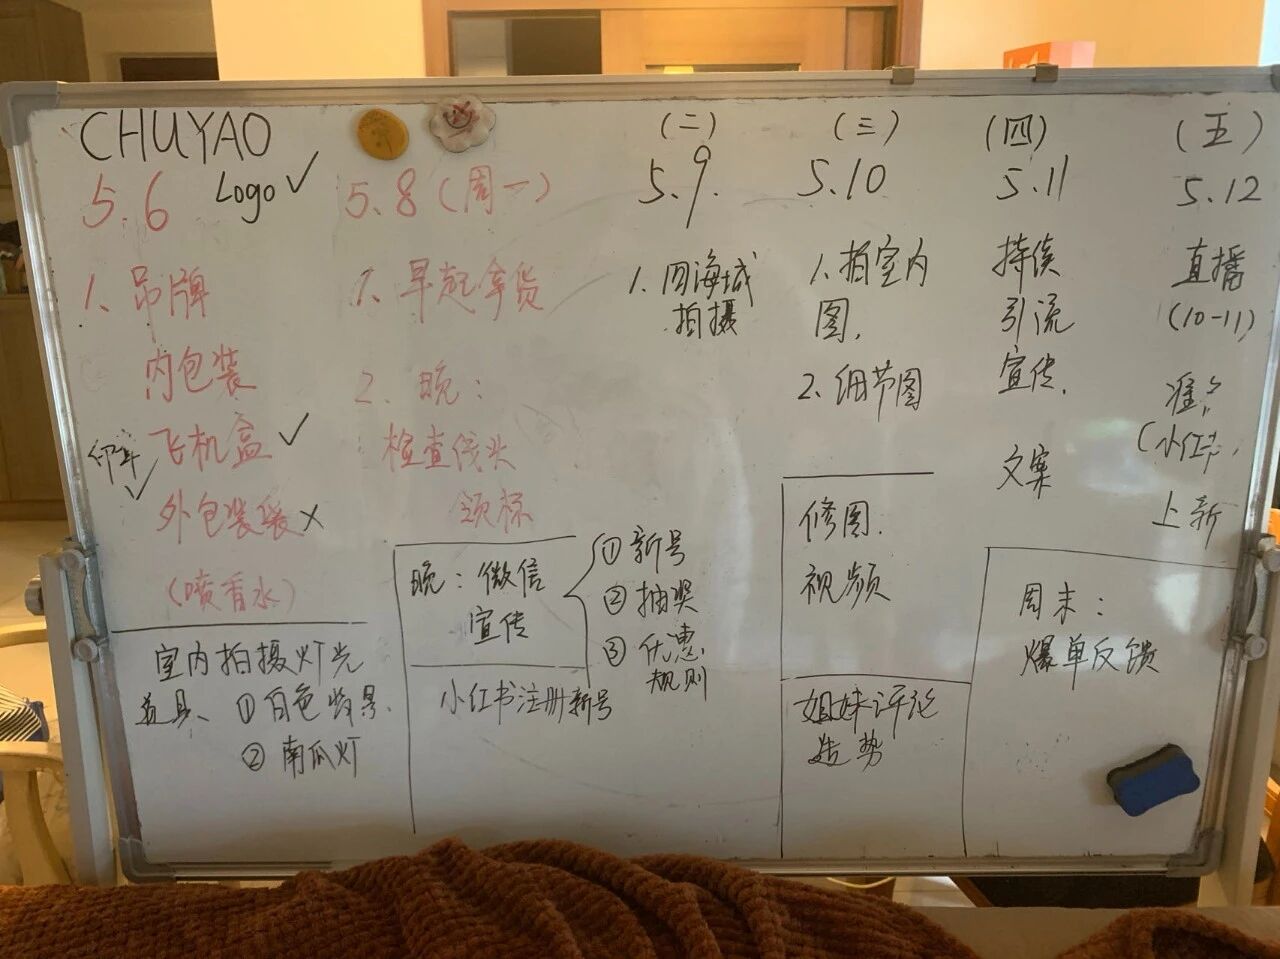 CHUYAO
5.6 Logo ✓
1. 吊牌
内包装
飞机盒 ✓
外包装袋 ×
(喷香水)
室内拍摄灯光
道具、① 白色背景、
② 南瓜灯
5.8 (周一)
1. 早起拿货
2. 晚:
检查线头
领标
晚: 微信
宣传
① 新号
② 抽奖
③ 优惠
规则
小红书注册新号
(二)
5.9.
1. 四海城
拍摄
(三)
5.10
1. 拍室内
图.
2. 细节图
修图.
视频
姐妹评论
造势
(四)
5.11
持续
引流
宣传.
文案
(五)
5.12
直播
(10-11)
准备
(小红书,
上新
周末:
爆单反馈